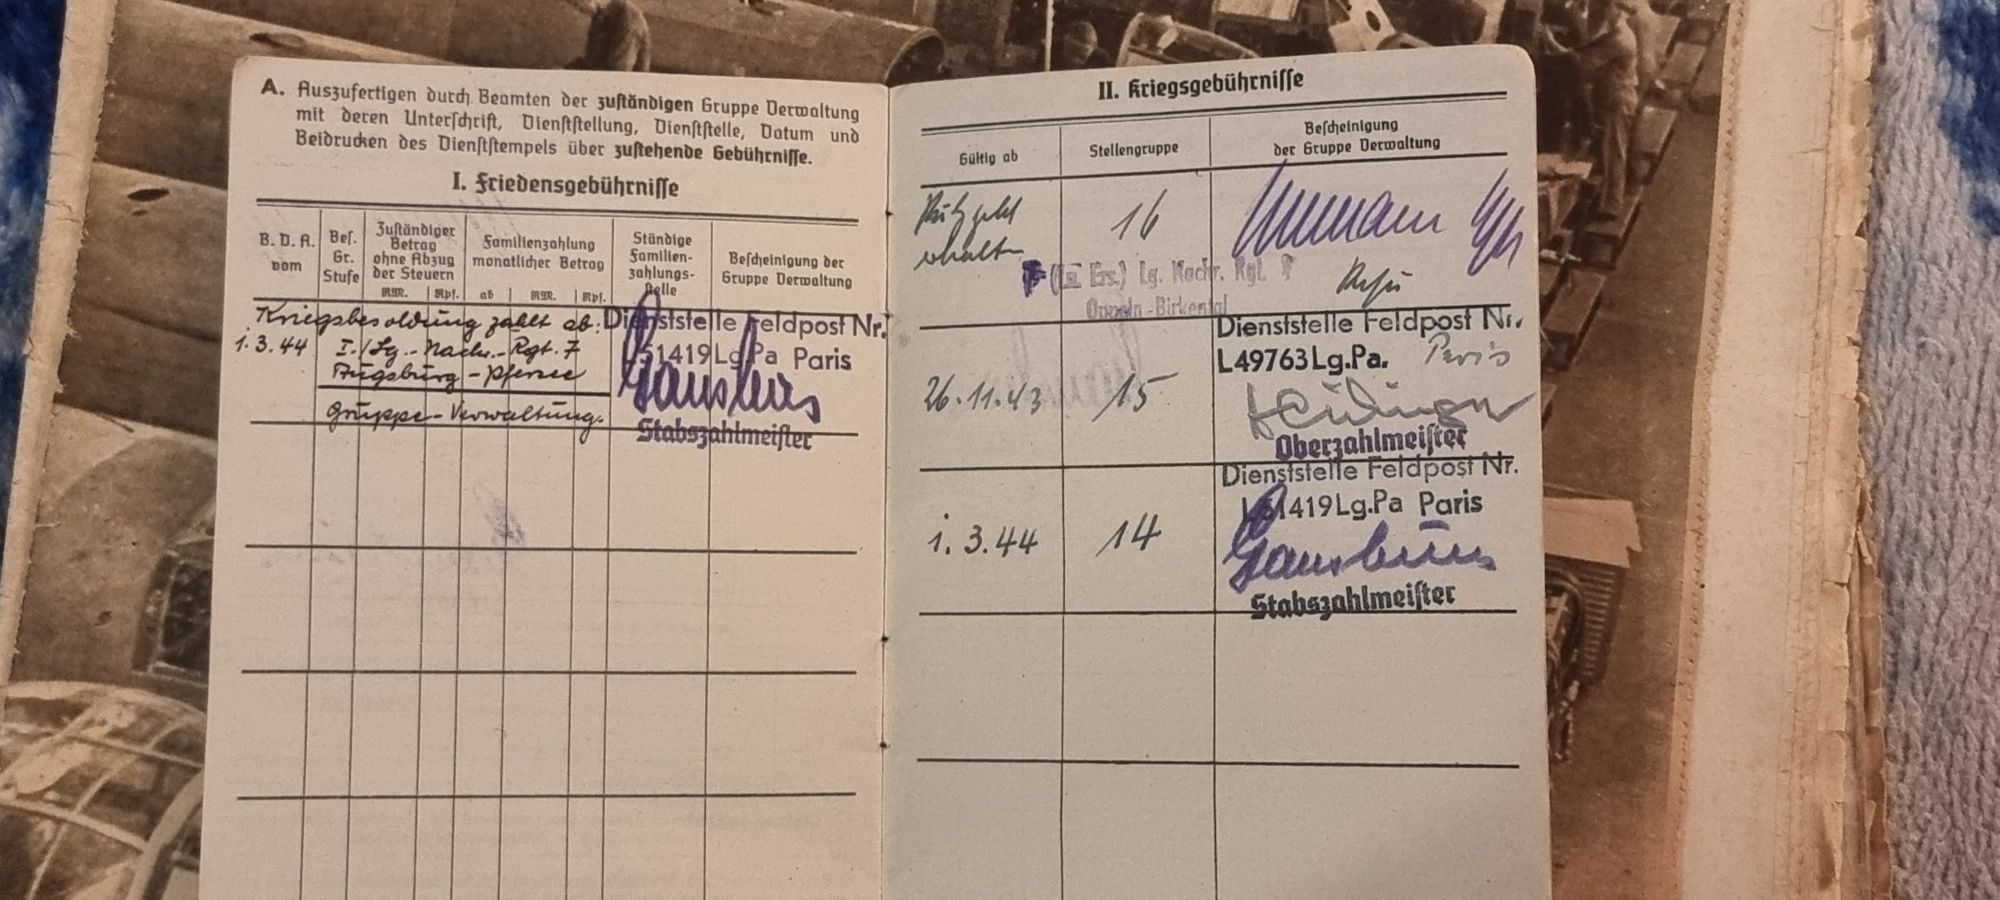 A. Auszufertigen durch Beamten der zuständigen Gruppe Verwaltung
mit deren Unterschrift, Dienststellung, Dienststelle, Datum und
Beidrucken des Dienststempels über zustehende Gebührnisse.
I. Friedensgebührnisse
B. D. A. vom
Bes. Gr. Stufe
Zuständiger Betrag ohne Abzug der Steuern
RM. Rpf.
Familienzahlung monatlicher Betrag
ab RM. Rpf.
Ständige Familien-zahlungs-stelle
Bescheinigung der Gruppe Verwaltung
Kriegsbesoldung zahlt ab:
1.3.44 I./Lg.-Nachr.-Rgt. 7
Augsburg-Pfersee
Gruppe-Verwaltung.
Dienststelle Feldpost Nr.
L51419Lg.Pa Paris
Stabszahlmeister
II. Kriegsgebührnisse
Gültig ab
Stellengruppe
Bescheinigung der Gruppe Verwaltung
erhalten
16
Ers.) Lg. Nachr. Rgt.
Oppeln-Birkental
26.11.43
15
Dienststelle Feldpost Nr.
L49763Lg.Pa. Paris
Oberzahlmeister
1.3.44
14
Dienststelle Feldpost Nr.
L51419Lg.Pa Paris
Stabszahlmeister